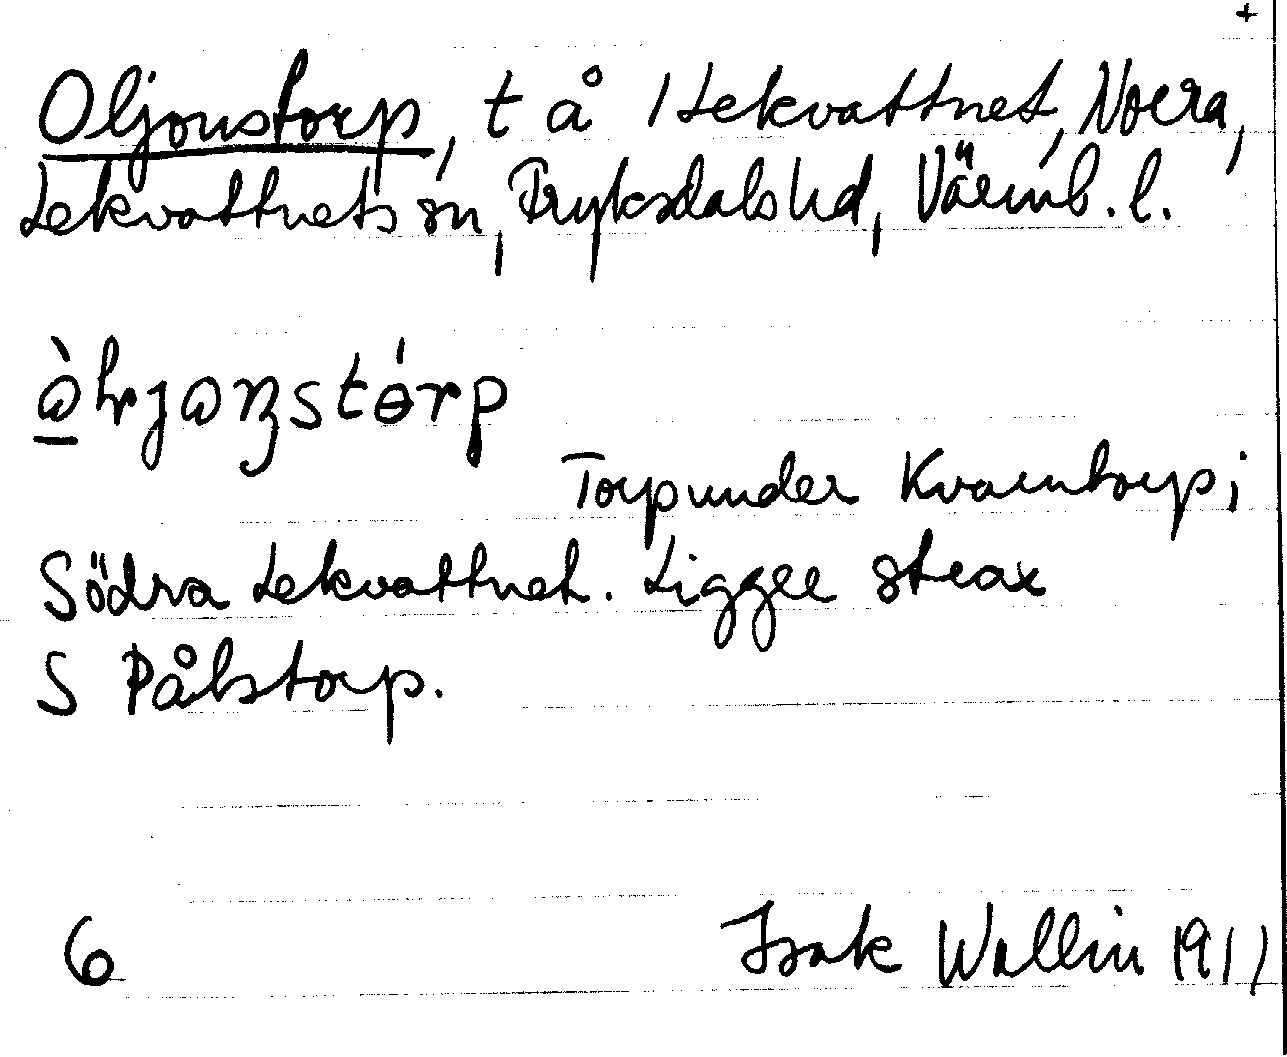 +
Oljonstorp, t å 1 Lekvattnet, Norra,
Lekvattnets sn, Fryksdals hd, Värml. l.
Torp under Kvarntorp i
Södra Lekvattnet. Ligger strax
S Pålstorp.
6 Isak Wallin 1911